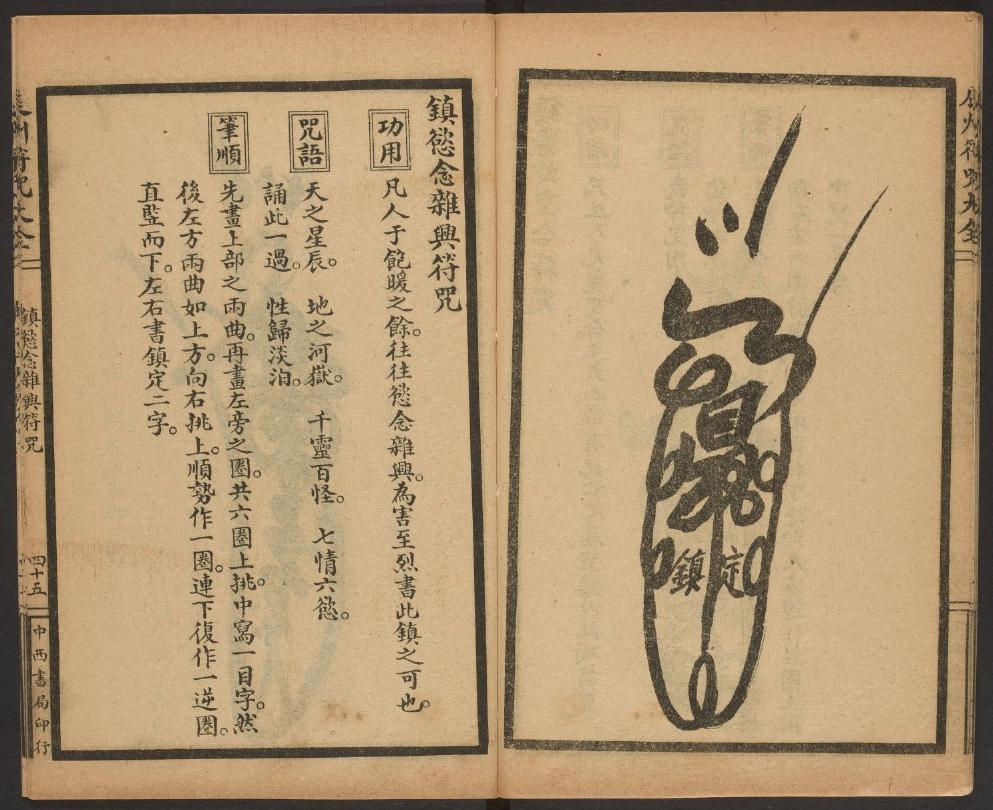 鎮定
鎮慾念雜興符咒
功用
凡人于飽暖之餘。往往慾念雜興。為害至烈。書此鎮之可也。
咒語
天之星辰。 地之河獄。 千靈百怪。 七情六慾。
誦此一過。 性歸淡泊。
筆順
先畫上部之兩曲。再畫左旁之圈。共六圈。上挑。中寫一目字。然
後左方兩曲如上方。向右挑上。順勢作一圈。連下復作一逆圈。
直竪而下。左右書鎮定二字。
鎮慾念雜興符咒
四十五
中西書局印行